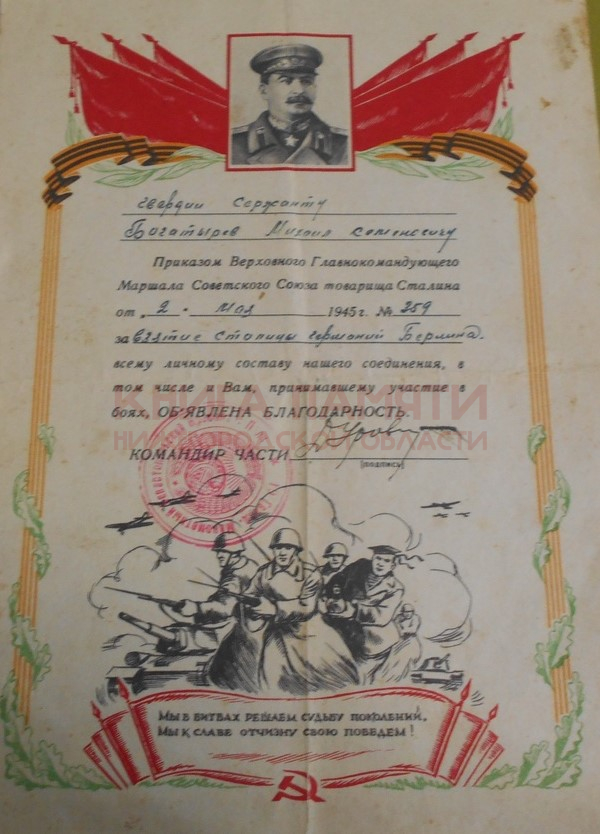 гвардии Сержанту
Богатырев Михаил Семенович
Приказом Верховного Главнокомандующего
Маршала Советского Союза товарища Сталина
от „2 - мая 1945 г. № 359
за взятие Столицы германий Берлина.
всему личному составу нашего соединения, в
том числе и Вам, принимавшему участие в
боях, ОБ'ЯВЛЕНА БЛАГОДАРНОСТЬ.
КНИГА ПАМЯТИ
НИЖЕГОРОДСКОЙ ОБЛАСТИ
КОМАНДИР ЧАСТИ
(подпись)
МЫ В БИТВАХ РЕШАЕМ СУДЬБУ ПОКОЛЕНИЙ,
МЫ К СЛАВЕ ОТЧИЗНУ СВОЮ ПОВЕДЕМ!